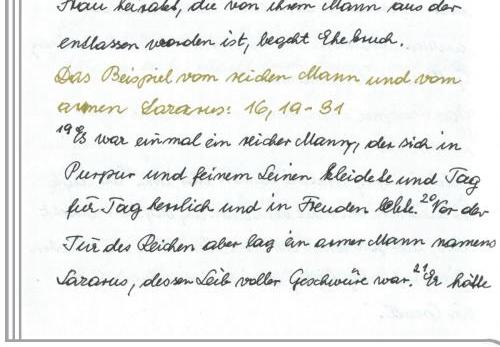 Frau heiratet, die von ihrem Mann aus der
entlassen worden ist, begeht Ehebruch.
Das Beispiel vom reichen Mann und vom
armen Lazarus: 16, 19-31
19 Es war einmal ein reicher Mann, der sich in
Purpur und feinem Leinen kleidete und Tag
für Tag herrlich und in Freuden lebte. 20 Vor der
Tür des Reichen aber lag ein armer Mann namens
Lazarus, dessen Leib voller Geschwüre war. 21 Er hätte